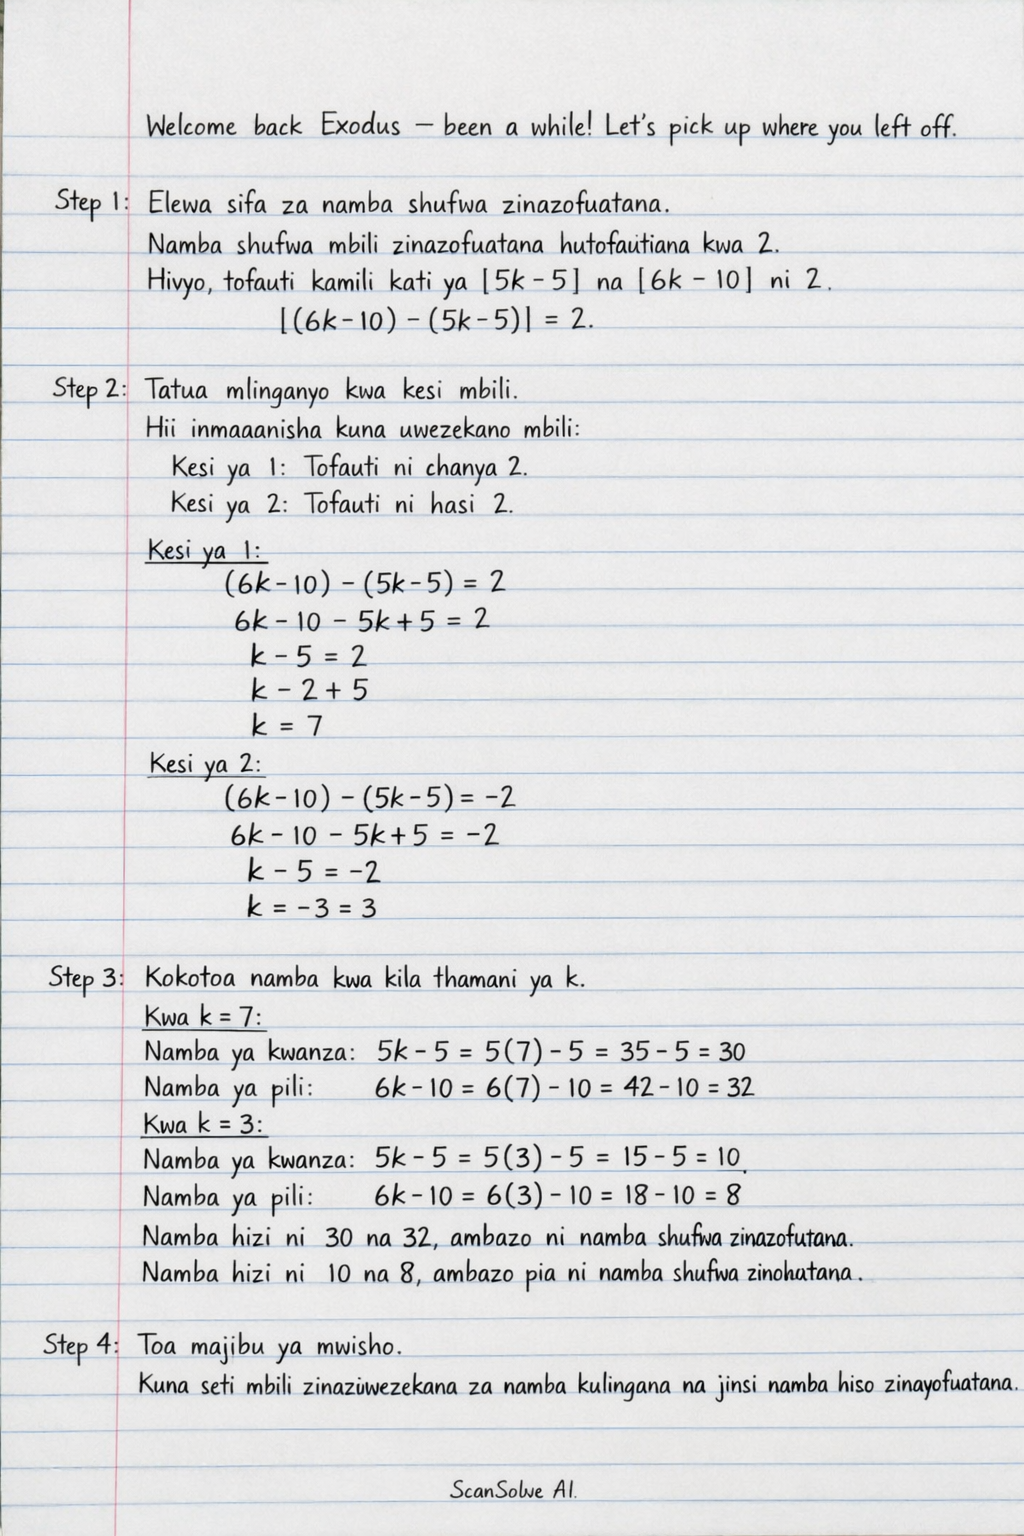 Welcome back Exodus – been a while! Let's pick up where you left off.
Step 1: Elewa sifa za namba shufwa zinazofuatana.
Namba shufwa mbili zinazofuatana hutofautiana kwa 2.
Hivyo, tofauti kamili kati ya ⌊5k - 5⌋ na ⌊6k - 10⌋ ni 2.
|(6k-10) - (5k-5)| = 2.
Step 2: Tatua mlinganyo kwa kesi mbili.
Hii inmaaanisha kuna uwezekano mbili:
Kesi ya 1: Tofauti ni chanya 2.
Kesi ya 2: Tofauti ni hasi 2.
Kesi ya 1:
(6k-10) - (5k-5) = 2
6k - 10 - 5k + 5 = 2
k - 5 = 2
k - 2 + 5
k = 7
Kesi ya 2:
(6k-10) - (5k-5) = -2
6k - 10 - 5k + 5 = -2
k - 5 = -2
k = -3 = 3
Step 3: Kokotoa namba kwa kila thamani ya k.
Kwa k = 7:
Namba ya kwanza: 5k - 5 = 5(7) - 5 = 35 - 5 = 30
Namba ya pili: 6k - 10 = 6(7) - 10 = 42 - 10 = 32
Kwa k = 3:
Namba ya kwanza: 5k - 5 = 5(3) - 5 = 15 - 5 = 10.
Namba ya pili: 6k - 10 = 6(3) - 10 = 18 - 10 = 8
Namba hizi ni 30 na 32, ambazo ni namba shufwa zinazofutana.
Namba hizi ni 10 na 8, ambazo pia ni namba shufwa zinohutana.
Step 4: Toa majibu ya mwisho.
Kuna seti mbili zinazuwezekana za namba kulingana na jinsi namba hiso zinayofuatana.
ScanSolve AI.